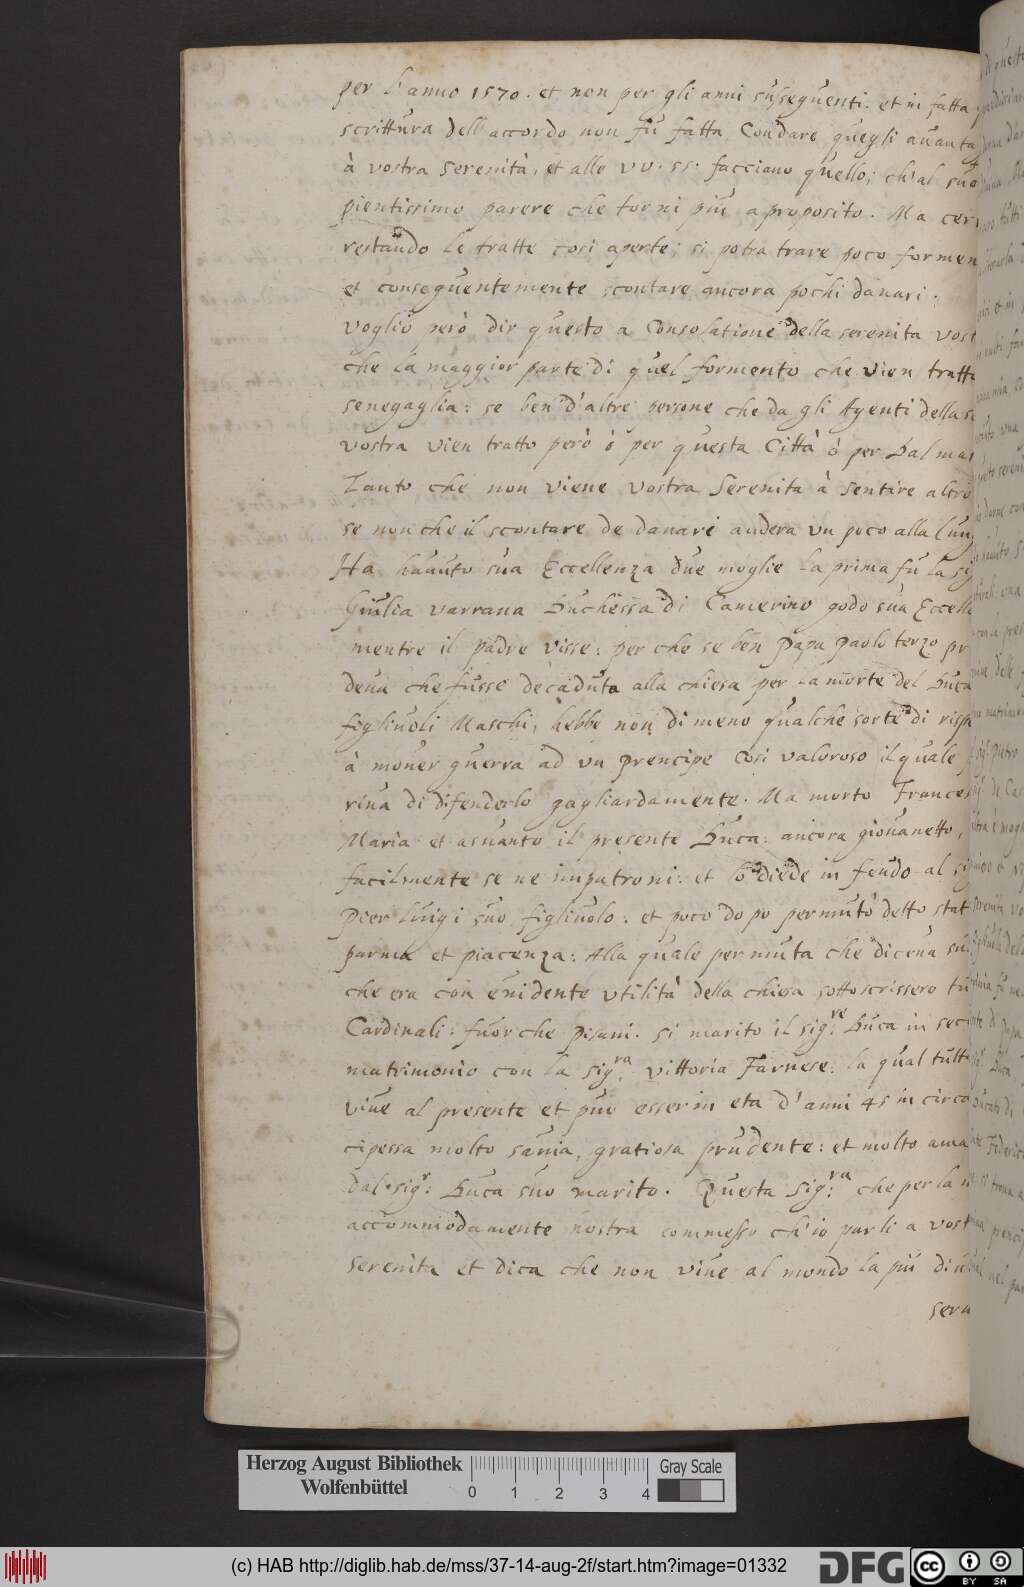 per l'anno 1570. et non per gli anni suseguenti. et in fatta
scrittura dell accordo non fù fatta Condare quegli auanta
à vostra Serenità, et alle VV. SS. facciano quello; ch'al suo
pientissimo parere che torni più a proposito. Ma cer
restando le tratte cosi aperte; si potra trare poco formen
et conseguentemente scontare ancora pochi danari.
Voglio però dir questo a Consolatione della serenita vost
che la maggior parte di quel formento che vien tratt
senegaglia: se ben d'altre persone che da gli Agenti della s
vostra vien tratto però ò per questa Città ò per Dalma
Tanto che non viene Vostra Serenita à sentire altro
se non che il scontare de danari andera un poco alla lun
Ha hauuto sua Eccellenza due moglie la prima fu la s
Giulia Varrana Duchessa di Camerino godo sua Eccell
mentre il padre visse: per che se ben Papa Paolo terzo pr
deua che fusse decaduta alla chiesa per la morte del Duca
figliuoli Maschi, hebbe non di meno qualche sorte di risp
à mouer guerra ad un prencipe cosi valoroso il quale
riua di difenderlo gagliardamente. Ma morto Frances
Maria et asunto il presente Duca: ancora giouanetto,
facilmente se ne impatroni: et lo diede in feudo al si
Pier luigi suo figliuolo: et poco do po permutò detto stat
parma et piacenza: Alla quale permuta che diceua su
che era con euidente utilità della chiesa sottoscrissero tu
Cardinali: fuor che Pisani. si marito il sig:re Duca in sec
matrimonio con la sig:ra Vittoria Farnese: la qual tutt
viue al presente et puo esser in eta d'anni 45 in circa
cipessa molto sauia, gratiosa prudente: et molto ama
dal sig:r Duca suo marito. Questa Sig:ra che per la
accommodamente nostra commesso ch'io parli a vost
serenita et dica che non viue al mondo la più diu
seru
Herzog August Bibliothek
Wolfenbüttel
0 1 2 3 4
Gray Scale
(c) HAB http://diglib.hab.de/mss/37-14-aug-2f/start.htm?image=01332
DFG
cc BY SA